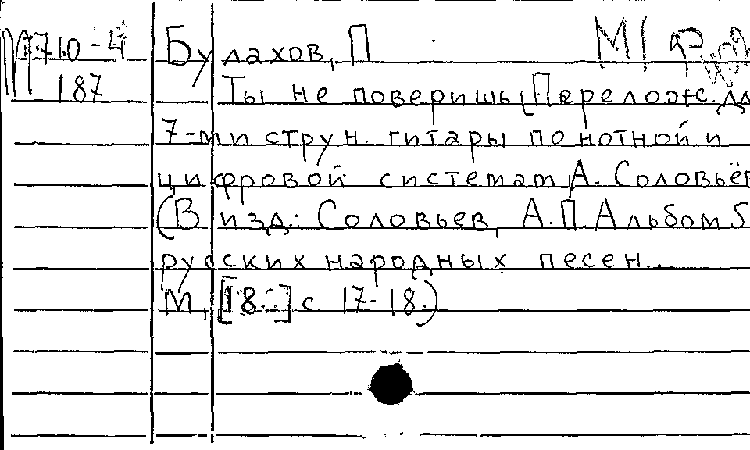 1710-4 Булахов, П М
187 Ты не поверишь [Перелож. дл
7-ми струн. гитары по нотной и
цифровой системам А. Соловьёв
(В изд: Соловьев, А.П. Альбом 5
русских народных песен.
М, [18..] с. 17-18.)